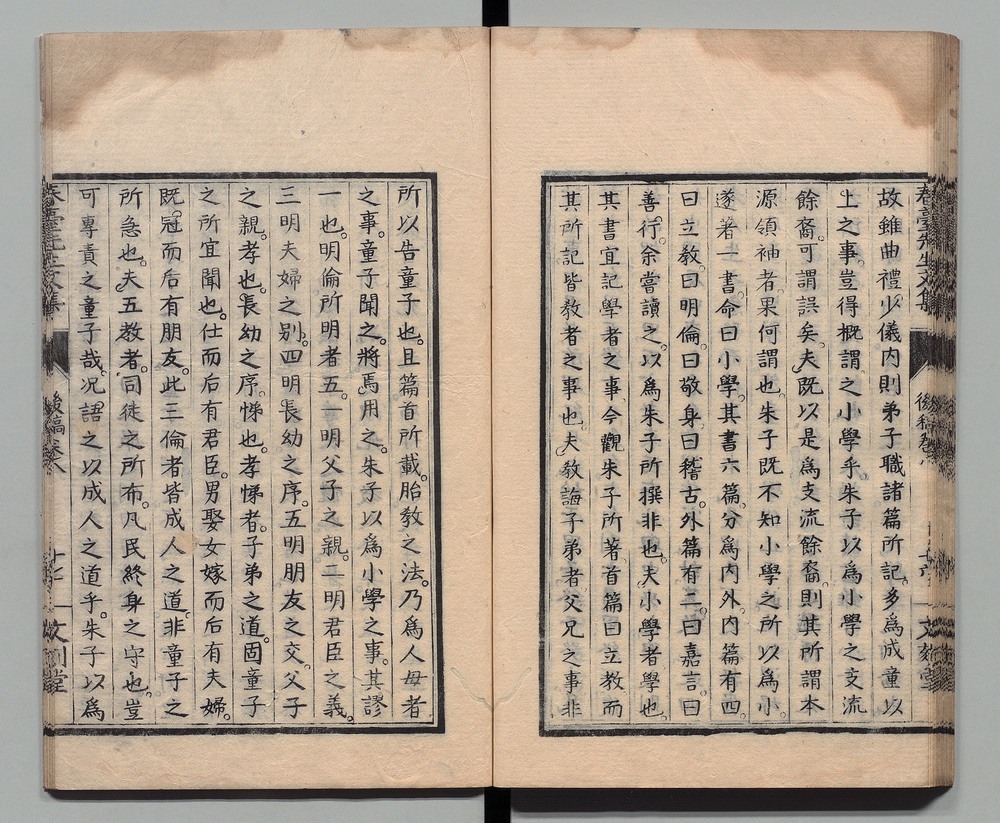 故雖曲禮少儀内則弟子職諸篇所記。多爲成童以
上之事。豈得概謂之小學乎。朱子以爲小學之支流
餘裔。可謂誤矣。夫既以是爲支流餘裔。則其所謂本
源領袖者。果何謂也。朱子既不知小學之所以爲小。
遂著一書。命曰小學。其書六篇。分爲内外。内篇有四。
曰立教。曰明倫。曰敬身。曰稽古。外篇有二。曰嘉言。曰
善行。余嘗讀之。以爲朱子所撰非也。夫小學者學也。
其書宜記學者之事。今觀朱子所著。首篇曰立教。而
其所記皆教者之事也。夫教誨子弟者。父兄之事。非
所以告童子也。且篇首所載。胎教之法。乃爲人母者
之事。童子聞之。將焉用之。朱子以爲小學之事。其謬
一也。明倫所明者五。一明父子之親。二明君臣之義。
三明夫婦之別。四明長幼之序。五明朋友之交。父子
之親。孝也。長幼之序。悌也。孝悌者。子弟之道。固童子
之所宜聞也。仕而后有君臣。男娶女嫁而后有夫婦。
既冠而后有朋友。此三倫者皆成人之道。非童子之
所急也。夫五教者。司徒之所布。凡民終身之守也。豈
可專責之童子哉。况語之以成人之道乎。朱子以爲
後稿卷八